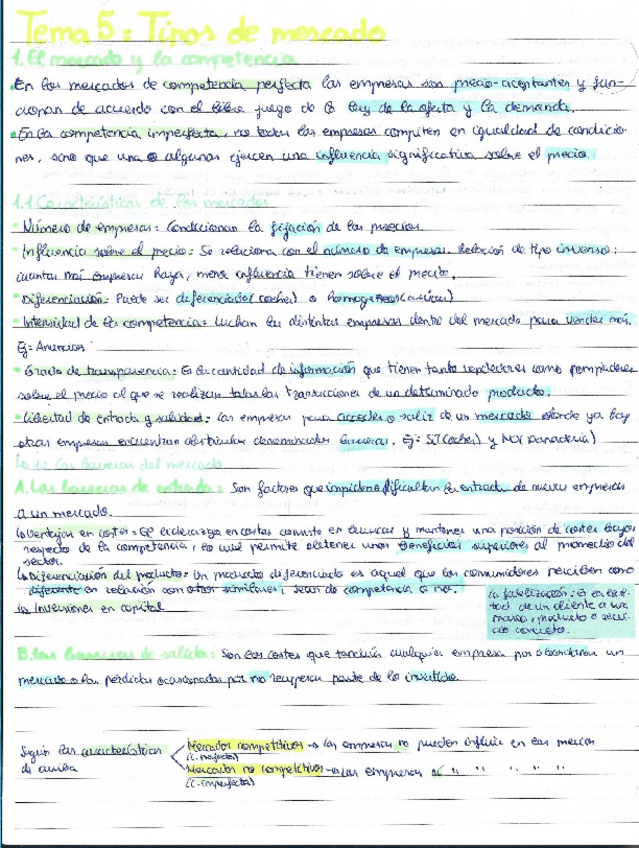 Tema 5: Tipos de mercado
1. El mercado y la competencia
• En los mercados de competencia perfecta las empresas son precio-aceptantes y fun-
cionan de acuerdo con el libre juego de la ley de la oferta y la demanda.
• En la competencia imperfecta, no todas las empresas compiten en igualdad de condicio-
nes, sino que una o algunas ejercen una influencia significativa sobre el precio.
1.1 Características de los mercados
• Número de empresas: Condicionan la fijación de los precios.
• Influencia sobre el precio: Se relaciona con el número de empresas. Relación de tipo inverso:
cuantas más empresas haya, menos influencia tienen sobre el precio.
• Diferenciación: Puede ser diferenciados (coches) o homogéneos (azúcar)
• Intensidad de la competencia: Luchan las distintas empresas dentro del mercado para vender más.
Ej: Anuncios
• Grado de transparencia: Es la cantidad de información que tienen tanto vendedores como compradores
sobre el precio al que se realizan todas las transacciones de un determinado producto.
• Libertad de entrada y salida: Las empresas para acceder o salir de un mercado donde ya hay
otras empresas encuentran obstáculos denominados barreras. Ej: SI (coches) y NO (panadería)
↳ 1.2 Las barreras del mercado
A. Las barreras de entrada: Son factores que impiden o dificultan la entrada de nuevas empresas
a un mercado.
↳ Ventajas en costes: El liderazgo en costes consiste en buscar y mantener una posición de costes bajos
respecto de la competencia, lo cual permite obtener unos beneficios superiores al promedio del
sector.
↳ Diferenciación del producto: Un producto diferenciado es aquel que los consumidores perciben como
diferente en relación con otros similares, sean de competencia o no.
↳ Inversiones en capital
La fidelización: Es la leal-
tad de un cliente a una
marca, producto o servi-
cio concreto.
B. Las barreras de salida: Son los costes que tendría cualquier empresa por abandonar un
mercado o las pérdidas ocasionadas por no recuperar parte de lo invertido.
Según las características
de arriba
Mercados competitivos → las empresas no pueden influir en los precios
(C. perfecta)
Mercados no competitivos → las empresas sí " " " "
(C. imperfecta)